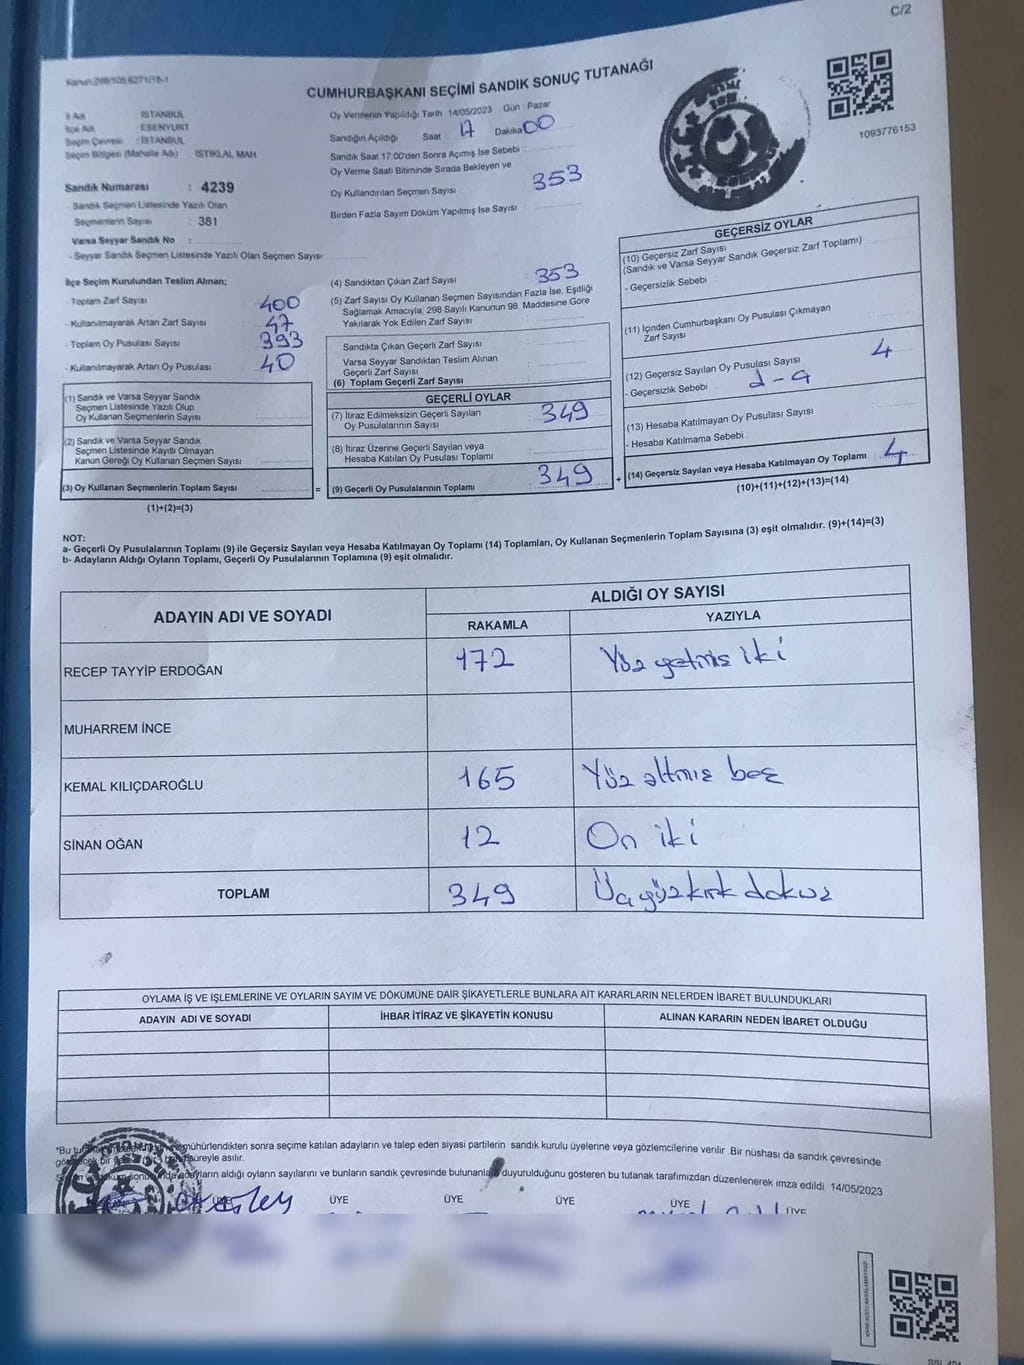 C/2
Kanun:298/105 6271/18-1
CUMHURBAŞKANI SEÇİMİ SANDIK SONUÇ TUTANAĞI
1093776153
İl Adı : İSTANBUL
İlçe Adı : ESENYURT
Seçim Çevresi : İSTANBUL
Seçim Bölgesi (Mahalle Adı) : İSTİKLAL MAH
Sandık Numarası : 4239
- Sandık Seçmen Listesinde Yazılı Olan
Seçmenlerin Sayısı : 381
Varsa Seyyar Sandık No :
- Seyyar Sandık Seçmen Listesinde Yazılı Olan Seçmen Sayısı
Oy Vermenin Yapıldığı Tarih :14/05/2023 Gün : Pazar
Sandığın Açıldığı Saat 17 Dakika 00
Sandık Saat 17:00'den Sonra Açımış İse Sebebi :
Oy Verme Saati Bitiminde Sırada Bekleyen ve
Oy Kullandırılan Seçmen Sayısı 353
Birden Fazla Sayım Döküm Yapılmış İse Sayısı :
İlçe Seçim Kurulundan Teslim Alınan;
- Toplam Zarf Sayısı 400
- Kullanılmayarak Artan Zarf Sayısı 47
- Toplam Oy Pusulası Sayısı 393
- Kullanılmayarak Artan Oy Pusulası 40
(1) Sandık ve Varsa Seyyar Sandık
Seçmen Listesinde Yazılı Olup
Oy Kullanan Seçmenlerin Sayısı
(2) Sandık ve Varsa Seyyar Sandık
Seçmen Listesinde Kayıtlı Olmayan
Kanun Gereği Oy Kullanan Seçmen Sayısı
(3) Oy Kullanan Seçmenlerin Toplam Sayısı =
(1)+(2)=(3)
(4) Sandıktan Çıkan Zarf Sayısı 353
(5) Zarf Sayısı Oy Kullanan Seçmen Sayısından Fazla İse, Eşitliği
Sağlamak Amacıyla, 298 Sayılı Kanunun 98. Maddesine Göre
Yakılarak Yok Edilen Zarf Sayısı
Sandıkta Çıkan Geçerli Zarf Sayısı
Varsa Seyyar Sandıktan Teslim Alınan
Geçerli Zarf Sayısı
(6) Toplam Geçerli Zarf Sayısı
GEÇERLİ OYLAR
(7) İtiraz Edilmeksizin Geçerli Sayılan
Oy Pusulalarının Sayısı 349
(8) İtiraz Üzerine Geçerli Sayılan veya
Hesaba Katılan Oy Pusulası Toplamı
(9) Geçerli Oy Pusulalarının Toplamı 349 +
GEÇERSİZ OYLAR
(10) Geçersiz Zarf Sayısı
(Sandık ve Varsa Seyyar Sandık Geçersiz Zarf Toplamı)
- Geçersizlik Sebebi :
(11) İçinden Cumhurbaşkanı Oy Pusulası Çıkmayan
Zarf Sayısı
(12) Geçersiz Sayılan Oy Pusulası Sayısı 4
- Geçersizlik Sebebi
(13) Hesaba Katılmayan Oy Pusulası Sayısı
- Hesaba Katılmama Sebebi :
(14) Geçersiz Sayılan veya Hesaba Katılmayan Oy Toplamı : 4
(10)+(11)+(12)+(13)=(14)
NOT:
a- Geçerli Oy Pusulalarının Toplamı (9) ile Geçersiz Sayılan veya Hesaba Katılmayan Oy Toplamı (14) Toplamları, Oy Kullanan Seçmenlerin Toplam Sayısına (3) eşit olmalıdır. (9)+(14)=(3)
b- Adayların Aldığı Oyların Toplamı, Geçerli Oy Pusulalarının Toplamına (9) eşit olmalıdır.
ADAYIN ADI VE SOYADI
ALDIĞI OY SAYISI
RAKAMLA YAZIYLA
RECEP TAYYİP ERDOĞAN 172 Yüz yetmiş iki
MUHARREM İNCE
KEMAL KILIÇDAROĞLU 165 Yüz altmış beş
SİNAN OĞAN 12 On iki
TOPLAM 349 Üç yüz kırk dokuz
OYLAMA İŞ VE İŞLEMLERİNE VE OYLARIN SAYIM VE DÖKÜMÜNE DAİR ŞİKAYETLERLE BUNLARA AİT KARARLARIN NELERDEN İBARET BULUNDUKLARI
ADAYIN ADI VE SOYADI İHBAR İTİRAZ VE ŞİKAYETİN KONUSU ALINAN KARARIN NEDEN İBARET OLDUĞU
*Bu mühürlendikten sonra seçime katılan adayların ve talep eden siyasi partilerin sandık kurulu üyelerine veya gözlemcilerine verilir. Bir nüshası da sandık çevresinde
bir süreyle asılır.
adayların aldığı oyların sayılarını ve bunların sandık çevresinde bulunanlara duyurulduğunu gösteren bu tutanak tarafımızdan düzenlenerek imza edildi. 14/05/2023
ÜYE ÜYE ÜYE ÜYE ÜYE ÜYE